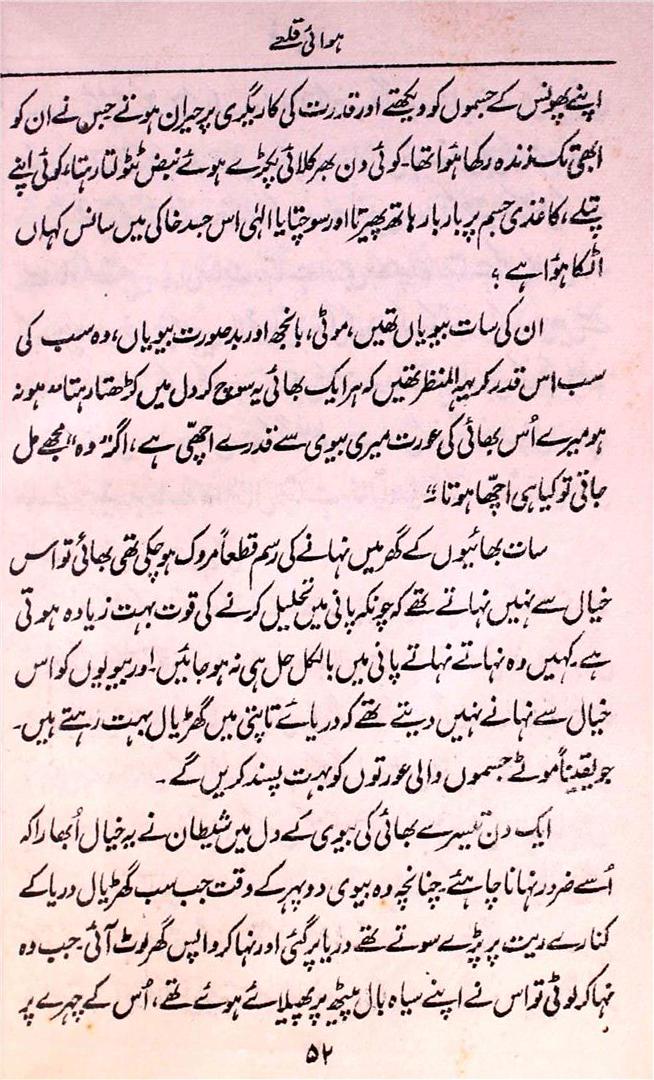 ہوائی قلعے
اپنے پھونس کے جسموں کو دیکھتے اور قدرت کی کاریگری پر حیران ہوتے جس نے ان کو
ابھی تک زندہ رکھا ہوا تھا۔ کوئی دن بھر کلائی پکڑے ہوئے نبض ٹٹولتا رہتا، کوئی اپنے
پتلے، کاغذی جسم پر بار بار ہاتھ پھیرتا اور سوچتا یا الٰہی اس جسد خاکی میں سانس کہاں
اٹکا ہوا ہے ؟
ان کی سات بیویاں تھیں، موٹی، بانجھ اور بدصورت بیویاں، وہ سب کی
سب اس قدر کریہہ المنظر تھیں کہ ہر ایک بھائی یہ سوچ کر دل میں کڑھتا رہتا "ہو نہ
ہو میرے اُس بھائی کی عورت میری بیوی سے قدرے اچھی ہے، اگر "وہ" مجھے مل
جاتی تو کیا ہی اچھا ہوتا"
سات بھائیوں کے گھر میں نہانے کی رسم قطعاً مروک ہو چکی تھی بھائی تو اس
خیال سے نہیں نہاتے تھے کہ چونکہ پانی میں تحلیل کرنے کی قوت بہت زیادہ ہوتی
ہے۔ کہیں وہ نہاتے نہاتے پانی میں بالکل حل ہی نہ ہو جائیں۔ اور بیویوں کو اس
خیال سے نہانے نہیں دیتے تھے کہ دریائے تاپتی میں گھڑیال بہت رہتے ہیں۔
جو یقیناً موٹے جسموں والی عورتوں کو بہت پسند کریں گے۔
ایک دن تیسرے بھائی کی بیوی کے دل میں شیطان نے یہ خیال اُبھارا کہ
اُسے ضرور نہانا چاہئے۔ چنانچہ وہ بیوی دوپہر کے وقت جب سب گھڑیال دریا کے
کنارے ریت پر پڑے سوتے تھے دریا پر گئی اور نہا کر واپس گھر لوٹ آئی۔ جب وہ
نہا کر لوٹی تو اس نے اپنے سیاہ بال پیٹھ پر پھیلائے ہوئے تھے، اُس کے چہرے پر
۵۲